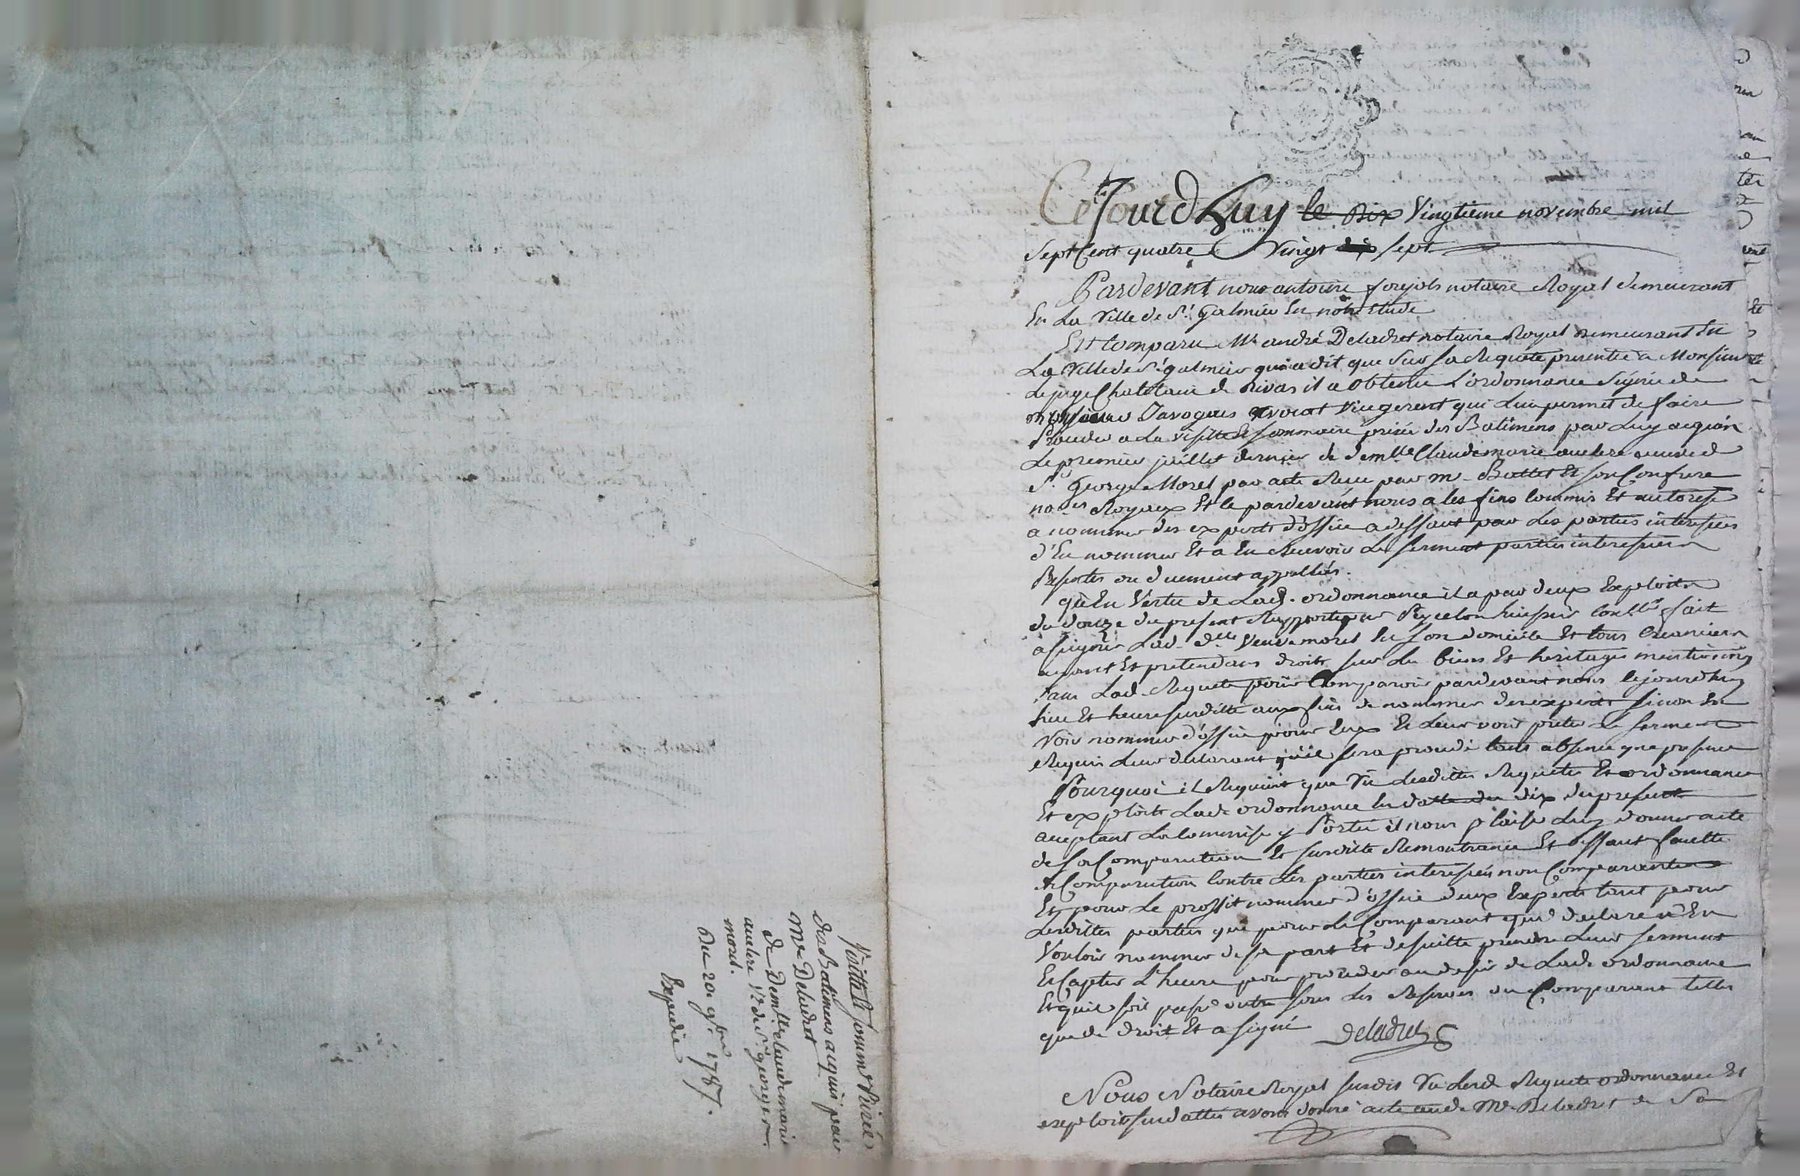 Visitte et somm.e Prisée
des Batiments acquis par
Me Deladret
de Demlle Claudemarie
aulere Ve de Sr george
morel.
Du 20e 9bre 1787.
Expediée
Ce Jourdhuy le dix vingtieme novembre mil
sept Cent quatre vingt dix sept
Pardevant nous antoine forjols notaire Royal demeurant
En La Ville de St galmier En notre Etude
Est Comparu Me andré Deladret notaire Royal demeurant En
La Ville de St galmier qui a dit que sur sa Requete presentée a Monsieur
Le juge Chatelain de Rivas il a obtenu L'ordonnance signée de
Monsieur Javogues avocat Viegerent qui Luy permet de faire
Proceder a La Visitte et sommaire prisée des Batiments par Luy acquis
Le premier juillet dernier de demlle Claudemarie aulere veuve de
Sr George Morel par acte Recu par Me Battet Et son Confrere
nores Royaux Et le pardevant nous a les fins Commis Et autorisé
a nommer des experts d'office a deffaut par Les parties interessées
d'En nommer Et a En Recevoir Le serment parties interessées
Presentes ou duement appellées.
qu'En Vertu de Lad. ordonnance il a par deux Exploits
du douze du present Rapportés par Peycelon huissier fait
assigner Lad. dlle Veuve morel En son domicile Et tous Creanciers
ayant Et pretendans droits sur Les biens Et heritages mentionnés
dans Lad. Requete pour Comparoir pardevant nous cejourdhuy
lieu Et heure susditte aux fins de nommer des experts sinon En
Voir nommer d'office pour Eux Et Leur voir preter Le serment
Requis Leur declarant qu'il sera procedé tant absence que presence
Pourquoi il Requiert que Vu Lesdittes Requetes Et ordonnance
Et exploits Lad. ordonnance En datte du dix du present
acceptant La Commission y Portée il nous plaise Luy donner acte
de sa Comparution Et susditte Remontrance Et deffaut faute
de Comparution Contre Les parties interessées non Comparantes
Et pour Le proffit nommer d'office deux Experts tant pour
Lesdittes parties que pour Le Comparant qui declare n'En
Vouloir nommer de sa part Et de suitte prendre Leur serment
Et Capter L'heure pour proceder au desir de Lad. ordonnance
Et qu'il soit passé outre sous Les Reserves du Comparant telles
que de droit Et a signé Deladret
Nous Notaire Royal susdit Vu Lesd. Requete ordonnance Et
exploits susdattés avons donné acte aud. Me Deladret de Sa